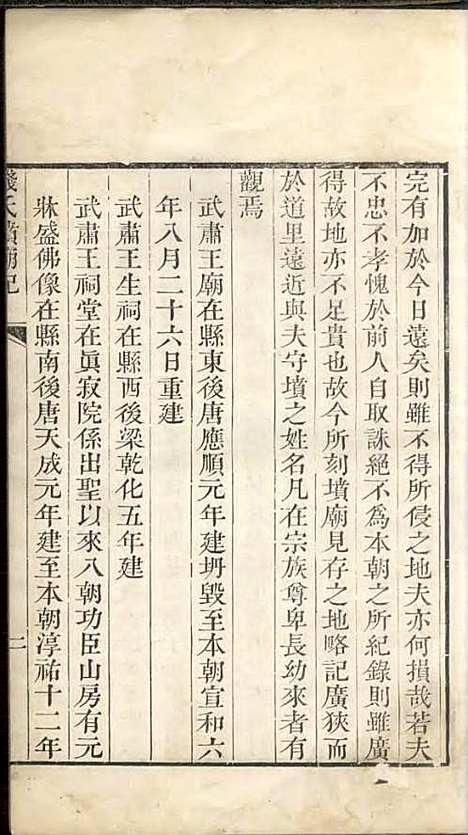 完有加於今日遠矣則雖不得所侵之地夫亦何損哉若夫
不忠不孝愧於前人自取誅絕不為本朝之所紀錄則雖廣
得故地亦不足貴也故今所刻墳廟見存之地略記廣狹而
於道里遠近與夫守墳之姓名凡在宗族尊卑長幼來者有
觀焉
武肅王廟在縣東後唐應順元年建坍毀至本朝宣和六
年八月二十六日重建
武肅王生祠在縣西後梁乾化五年建
武肅王祠堂在眞寂院係出聖以來八朝功臣山房有元
牀盛佛像在縣南後唐天成元年建至本朝淳祐十二年
錢氏墳廟記
二